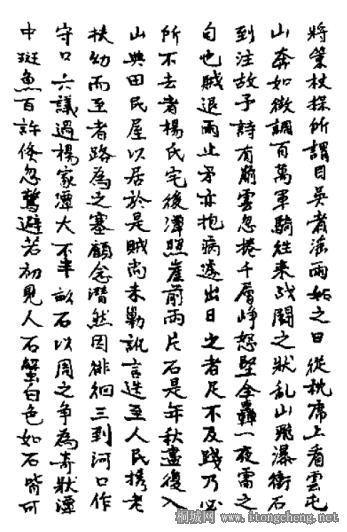 將策杖探所謂日吳者溪雨始之日從枕席上看雲屯
山奔如微調百萬軍騎往来战鬪之狀乱山飛瀑衝石
到注故予詩有崩雲忽捲千層崢怒壑全轟一夜雷之
句也賊退雨止予亦抱病遽出日之者足不及踐乃必
所不去者楊氏宅後潭照崖前兩片石是年秋盡復入
山典田民屋以居於是賊尚未勦訛言迭至人民携老
扶幼而至者路為之塞顧念潸然因徘徊三到河口作
守口六議過楊家潭大不半畝石以周之争為奇狀潭
中斑魚百許倏忽驚避若初見人石蟹白色如石皆可
桐城网 www.itongcheng.net